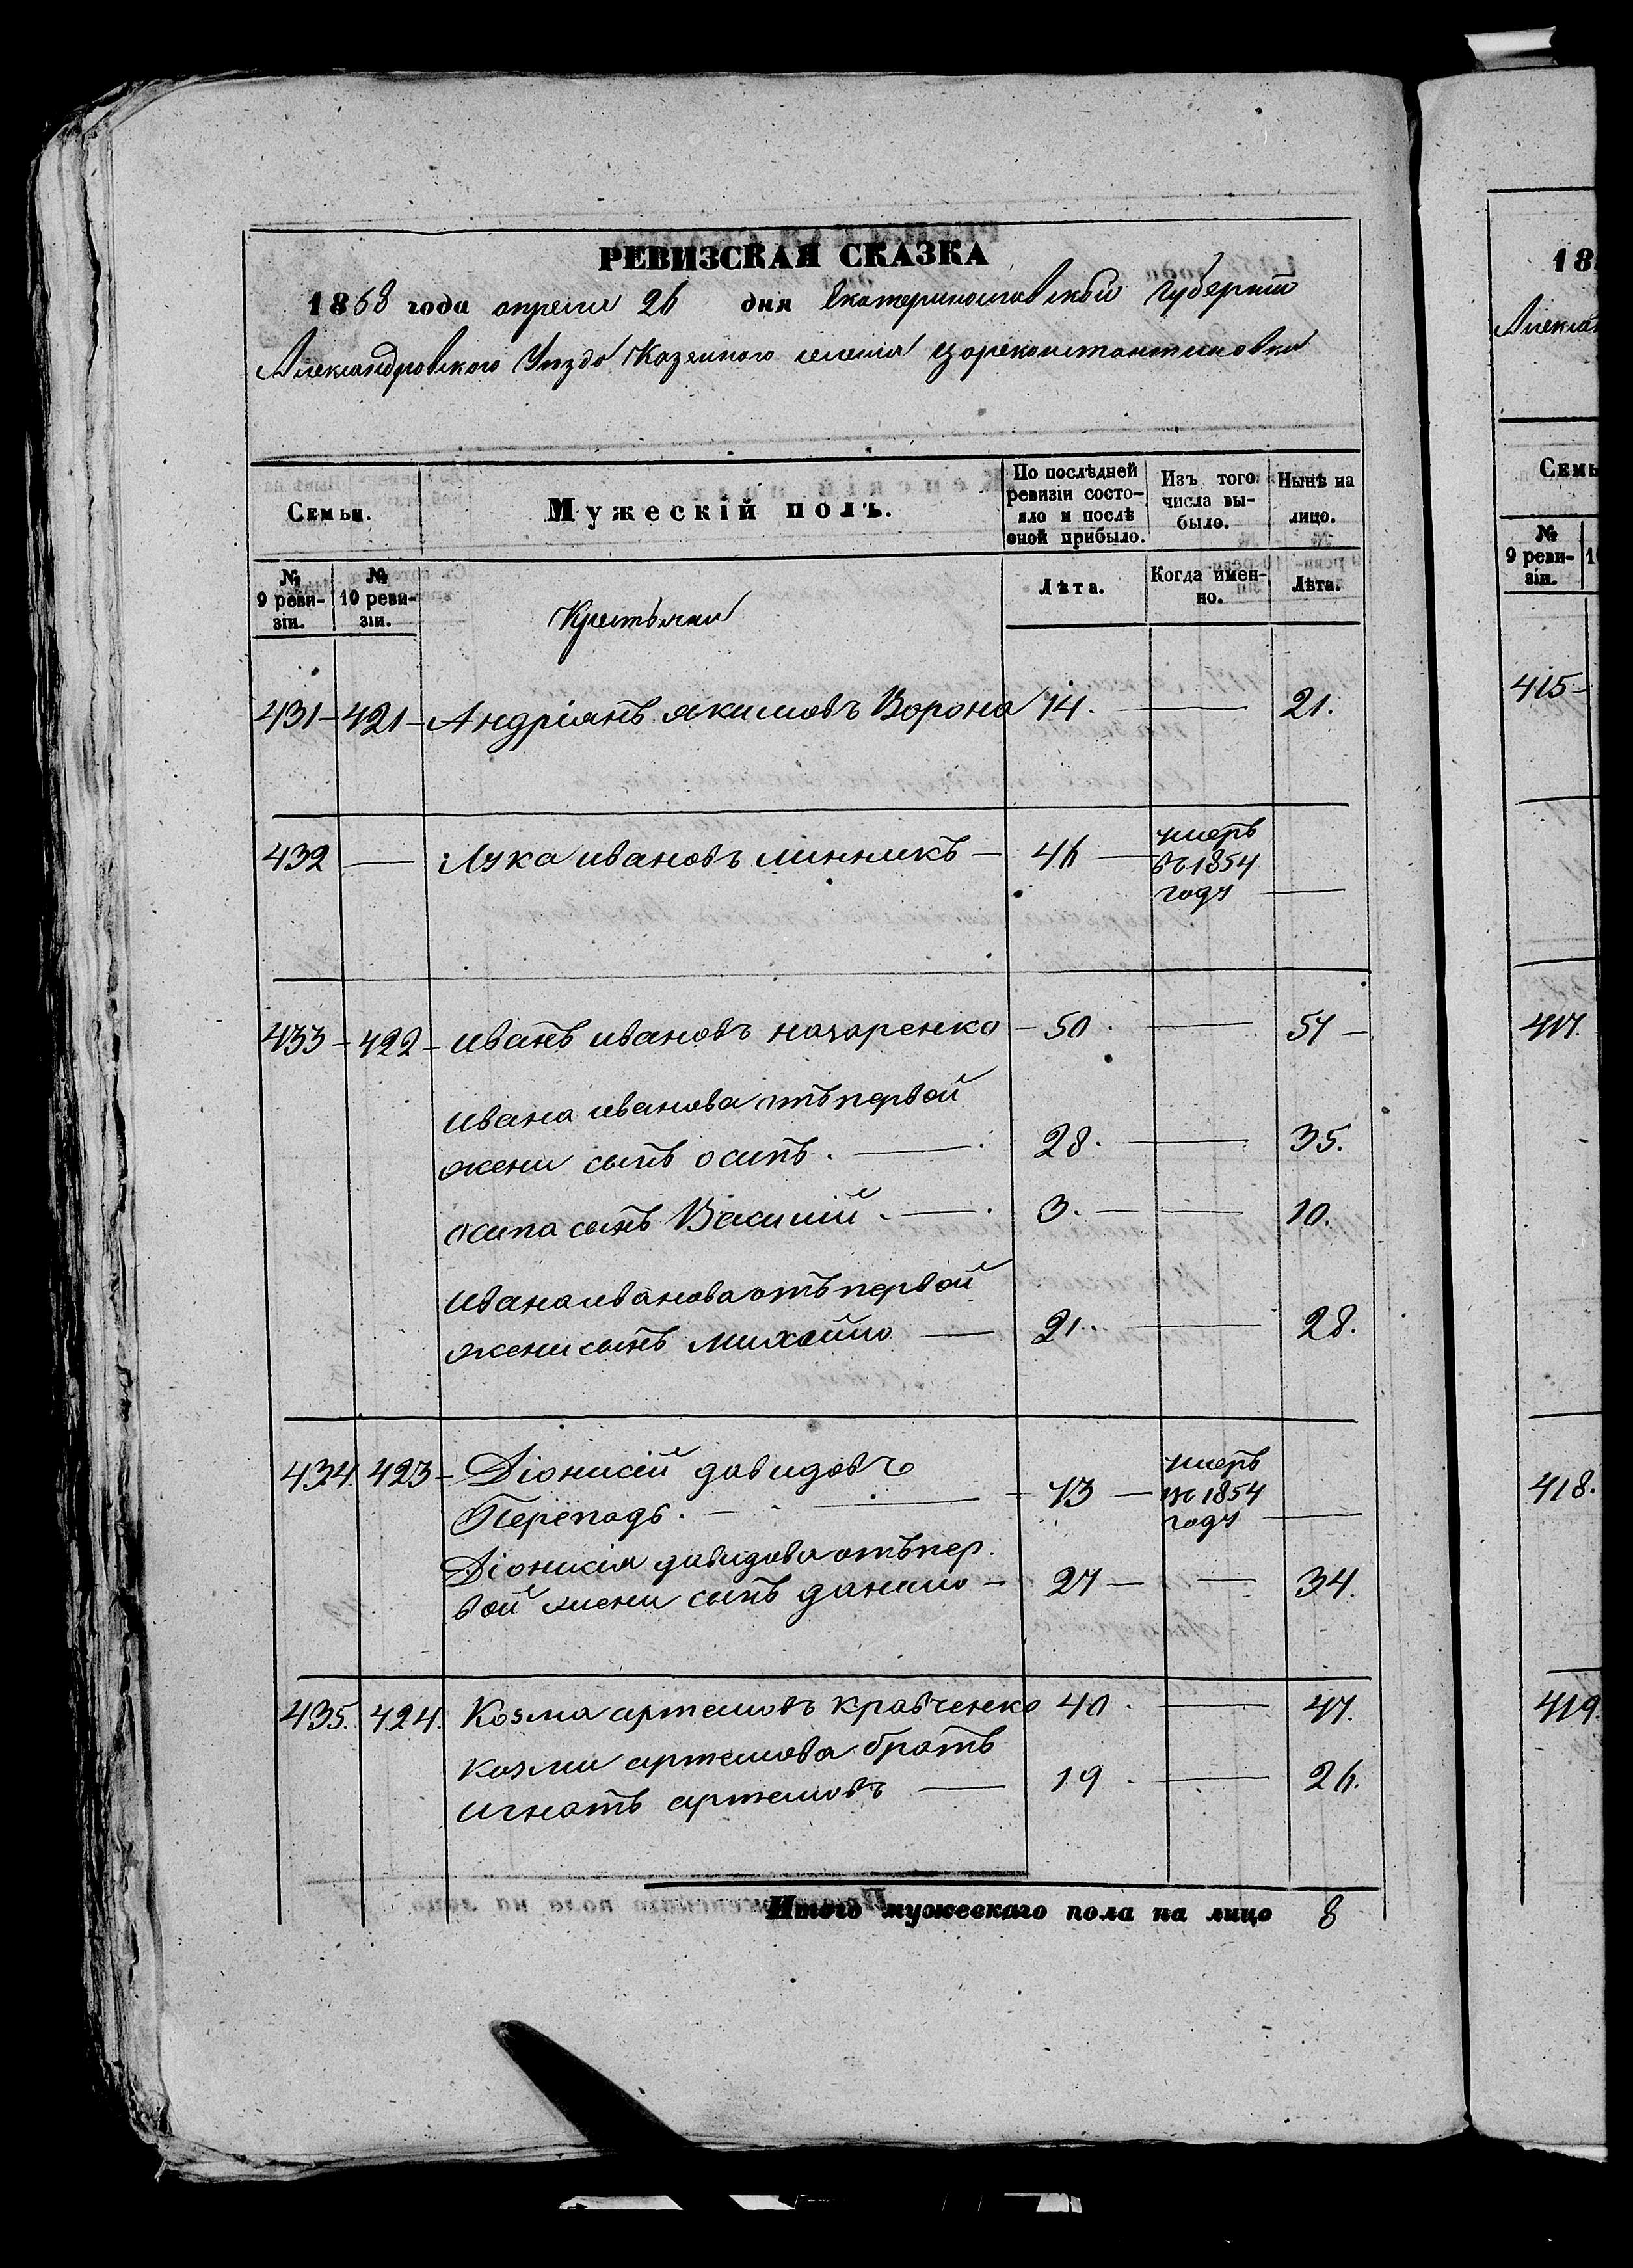 РЕВИЗСКАЯ СКАЗКА
1858 года апреля 26 дня Екатеринославской Губернии
Александровского Уезда Казенного селения Цареконстантиновки
Семьи.
Мужескій полъ.
По послѣдней ревизіи состо-
яло и послѣ
оной прибыло.
Изъ того
числа вы-
было.
Нынѣ на
лицо.
№
9 реви-
зіи.
№
10 реви-
зіи.
Лѣта.
Когда имен-
но.
Лѣта.
Крестьяне
431 – 421 – Андріянъ якимовъ Ворона 14. — 21.
432 — Лука ивановъ линникъ – 46 — умеръ
въ 1854
году —
433 – 422 – иванъ ивановъ назаренко – 50. — 57 –
ивана иванова отъ первой
жени сынъ осипъ. — 28. — 35.
осипа сынъ Василий. — 3. — 10.
ивана иванова отъ первой
жени сынъ михайло — 21. — 28.
434. 423 – Діонисій давидовъ
Перепадь. — 73 — умеръ
въ 1854
году —
Діонисія давидова отъ пер.
вой жени сынъ данило – 27 — 34.
435. 424. Козма артемовъ кравченко 40. — 47.
козми артемова братъ
игнатъ артемовъ — 19. — 26.
Итого мужескаго пола на лицо 8
18
Алексан
Семь
№
9 реви-
зіи.
415 –
417.
418.
419.